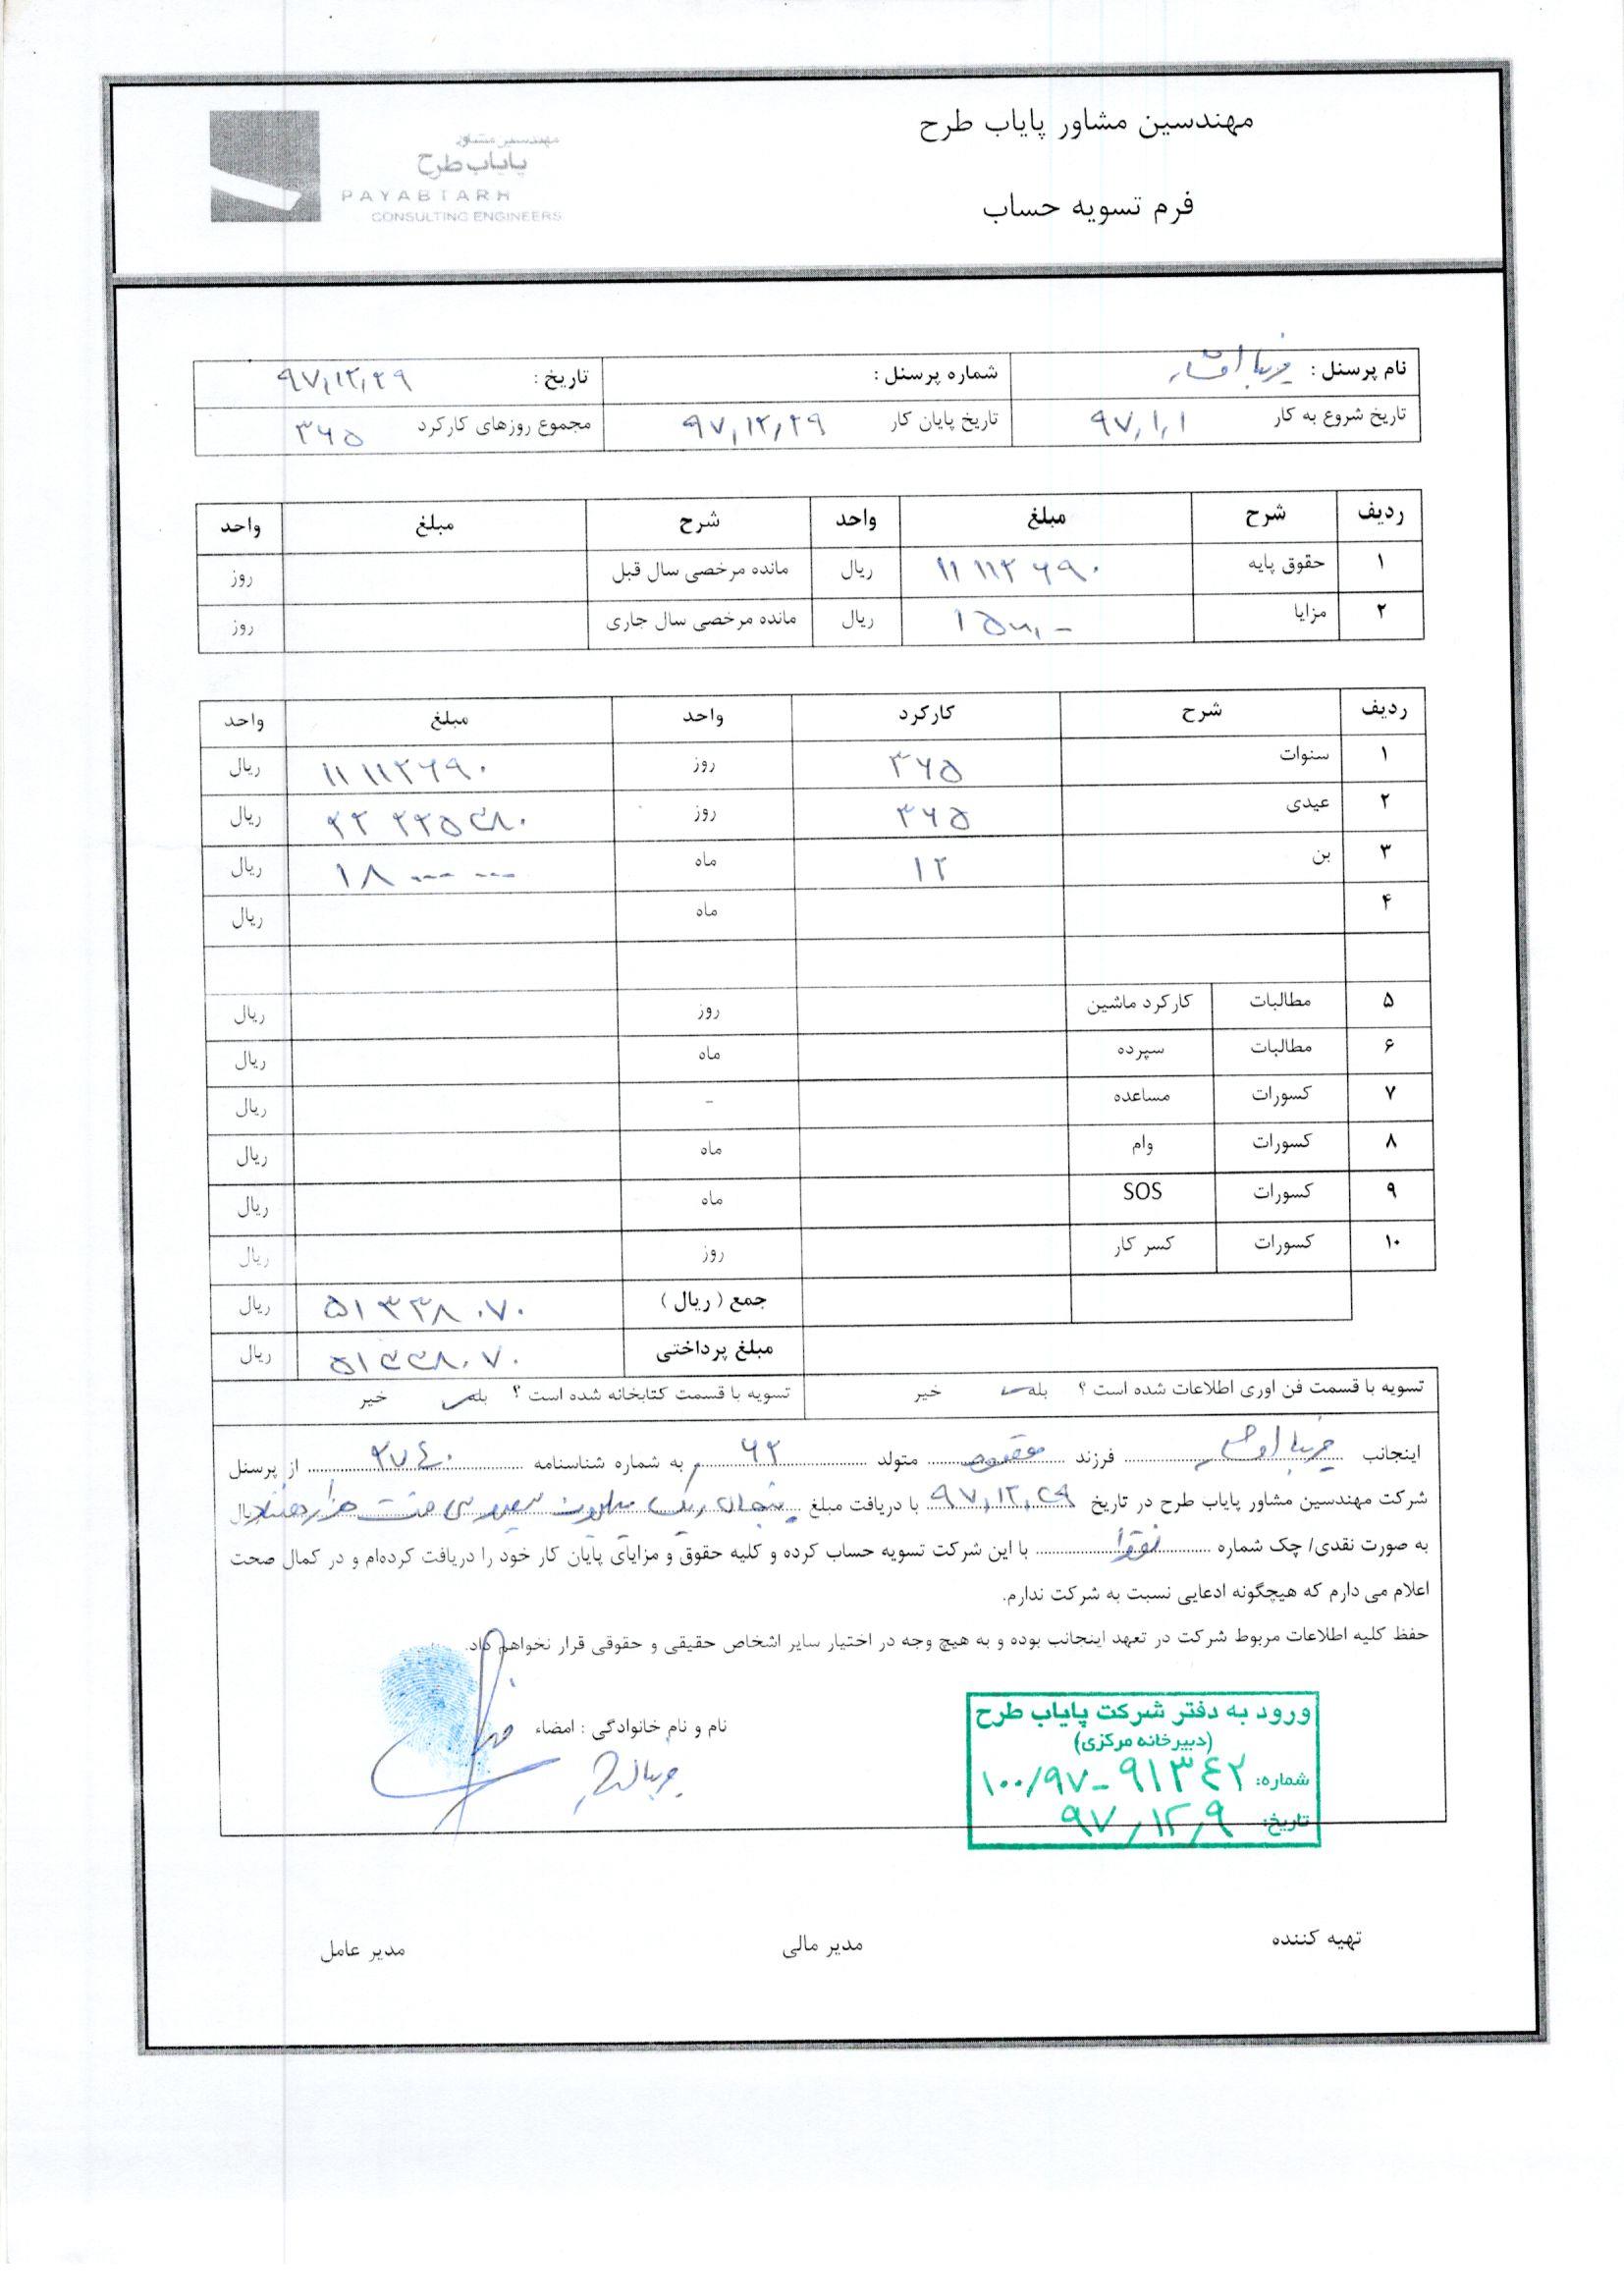 مهندسین مشاور پایاب طرح
فرم تسویه حساب
مهندسین مشاور
پایاب طرح
PAYABTARH
CONSULTING ENGINEERS
نام پرسنل : فریبا افشار شماره پرسنل : تاریخ : ۹۷,۱۲,۲۹
تاریخ شروع به کار ۹۷,۱,۱ تاریخ پایان کار ۹۷,۱۲,۲۹ مجموع روزهای کارکرد ۳۶۵
ردیف شرح مبلغ واحد شرح مبلغ واحد
۱ حقوق پایه ۱۱ ۱۱۲ ۶۹۰ ریال مانده مرخصی سال قبل روز
۲ مزایا ریال مانده مرخصی سال جاری روز
ردیف شرح کارکرد واحد مبلغ واحد
۱ سنوات ۳۶۵ روز ۱۱ ۱۱۲ ۶۹۰ ریال
۲ عیدی ۳۶۵ روز ۲۲ ۲۲۵ ۳۸۰ ریال
۳ بن ۱۲ ماه ۱۸ ۰۰۰ ۰۰۰ ریال
۴ ماه ریال
۵ مطالبات کارکرد ماشین روز ریال
۶ مطالبات سپرده ماه ریال
۷ کسورات مساعده - ریال
۸ کسورات وام ماه ریال
۹ کسورات SOS ماه ریال
۱۰ کسورات کسر کار روز ریال
جمع ( ریال ) ۵۱ ۳۳۸ ۰۷۰ ریال
مبلغ پرداختی ۵۱ ۳۳۸ ۰۷۰ ریال
تسویه با قسمت فن اوری اطلاعات شده است ؟ بله خیر تسویه با قسمت کتابخانه شده است ؟ بله خیر
اینجانب فریبا افشار فرزند متولد ۶۲ به شماره شناسنامه ۲۷۴۰ از پرسنل
شرکت مهندسین مشاور پایاب طرح در تاریخ ۹۷,۱۲,۲۹ با دریافت مبلغ پنجاه و یک میلیون سیصد و سی هشت هزار و هفتاد ریال
به صورت نقدی/ چک شماره نقدا با این شرکت تسویه حساب کرده و کلیه حقوق و مزایای پایان کار خود را دریافت کرده‌ام و در کمال صحت
اعلام می دارم که هیچگونه ادعایی نسبت به شرکت ندارم.
حفظ کلیه اطلاعات مربوط شرکت در تعهد اینجانب بوده و به هیچ وجه در اختیار سایر اشخاص حقیقی و حقوقی قرار نخواهم داد.
نام و نام خانوادگی : امضاء
فریبا افشار
ورود به دفتر شرکت پایاب طرح
(دبیرخانه مرکزی)
شماره: ۱۰۰/۹۷-۹۱۳۴۲
تاریخ: ۹۷,۱۲,۹
تهیه کننده مدیر مالی مدیر عامل